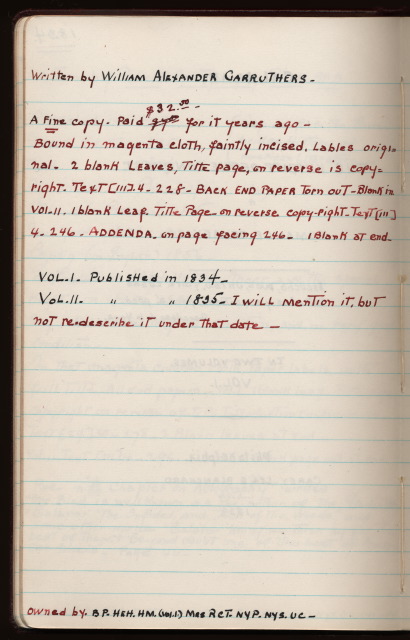 Written by William Alexander Carruthers -
$32.00 -
A Fine copy. Paid for it years ago -
Bound in magenta cloth, faintly incised. Lables origi-
nal. 2 blank Leaves, Title page, on reverse is copy-
right. Text [III]. 4 - 228 - Back end paper torn out - Blank in
Vol. II. 1 blank Leaf. Title Page - on reverse copy-right. Text [III]
4. - 246 - Addenda. on page facing 246 - 1 Blank at end.
Vol. I. Published in 1834 -
Vol. II. " " 1835 - I will mention it, but
not re-describe it under that date -
Owned by. B.P. HEH. HM. (vol. 1) Mas RCT. NYP. NYS. UC -